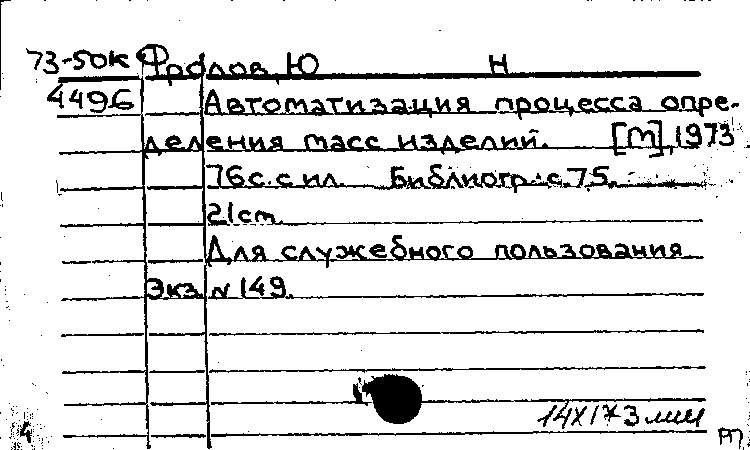 73-50к Фролов, Ю Н
4496 Автоматизация процесса опре-
деления масс изделий. [М], 1973
76с. с ил. Библиогр.: с. 75.
21 cm.
Для служебного пользования
Экз. № 149.
4